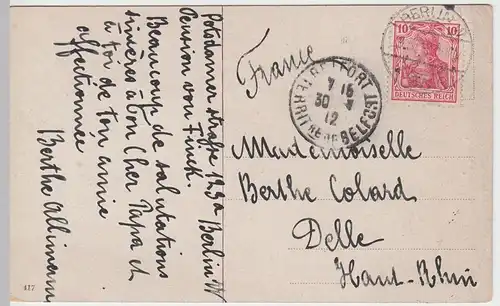 Potsdamer strasse 123a Berlin W
Pension von Finck.
Beaucoup de salutations
à bon Cher Papa et
à toi de ton amie
affectionnée
Berthe Allimann
417
France
BERLIN W
10 10
DEUTSCHES REICH
7 15
30
12
BELFORT
Mademoiselle
Berthe Colard
Delle
Haut-Rhin